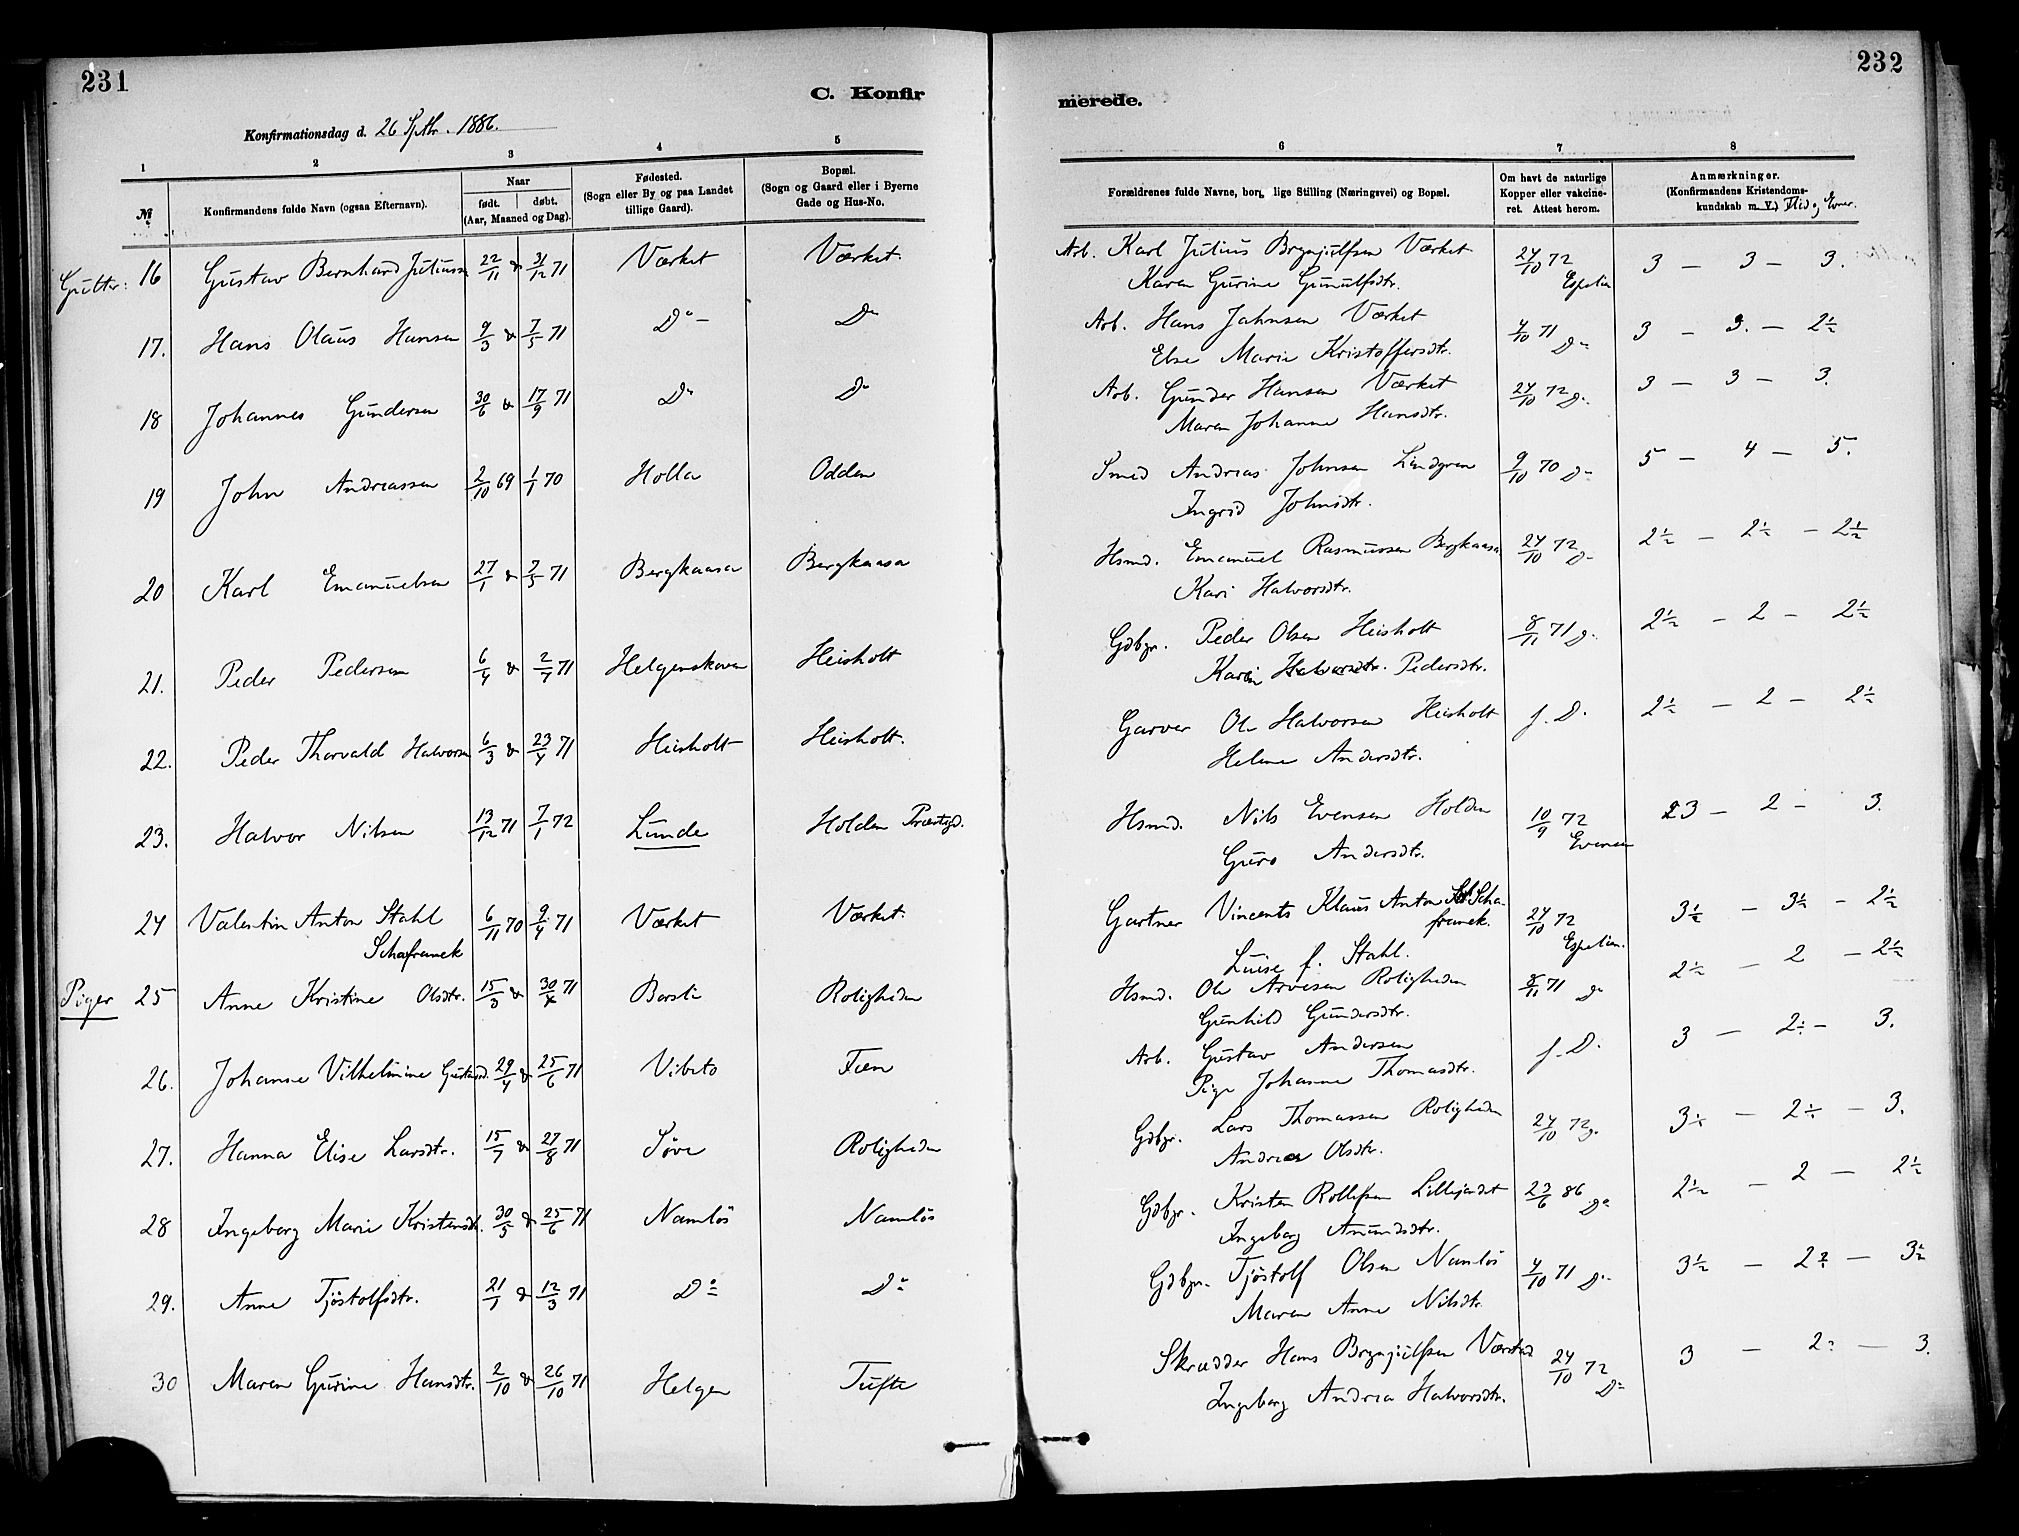 231
232
C. Konfir
merede.
Konfirmationsdag d. 26 Sptbr. 1886.
1 2 3 4 5 6 7 8
№
Konfirmandens fulde Navn (ogsaa Efternavn).
Naar
født. døbt.
(Aar, Maaned og Dag).
Fødested.
(Sogn eller By og paa Landet
tillige Gaard).
Bopæl.
(Sogn og Gaard eller i Byerne
Gade og Hus-No.
Forældrenes fulde Navne, borgerlige Stilling (Næringsvei) og Bopæl.
Om havt de naturlige
Kopper eller vakcine-
ret. Attest herom.
Anmærkninger.
(Konfirmandens Kristendoms-
kundskab m. V.) Flid og Evner.
Gutter: 16 Gustav Bernhard Juliussen 22/11 & 31/12 71 Værket Værket. Arb. Karl Julius Brynjulfsen Værket 24/10 72 3 — 3 — 3.
Karen Gurine Gunulfsdtr. Espelien
17. Hans Olaus Hansen 9/3 & 7/5 71 Do — Do Arb. Hans Jahnsen Værket 4/10 71 Do 3 — 3. — 2½
Else Marie Kristoffersdtr.
18 Johannes Gundersen 30/6 & 17/9 71 Do Do Arb. Gunder Hansen Værket 24/10 72 Do 3 — 3 — 3.
Maren Johanne Hansdtr.
19 John Andreassen 2/10 69 1/1 70 Holla Odden Smed Andreas Johnsen Lindgren 9/10 70 Do 5 — 4 — 5.
Ingrid Johnsdtr.
20 Karl Emanuelsen 27/1 & 7/5 71 Bergkaasa Bergkaasa Hsmd. Emanuel Rasmussen Bergkaasa 24/10 72 Do 2½ — 2½ — 2½
Kari Halvorsdtr.
21. Peder Pedersen 6/4 & 2/7 71 Helgenskaven Heisholt Gdbgr. Peder Olsen Heisholt 8/11 71 Do 2½ — 2 — 2½
Karen Halvorsdtr. Pedersdtr.
22. Peder Thorvald Halvorsen 6/3 & 23/4 71 Heisholt Heisholt. Garver Ole Halvorsen Heisholt f. D. 2½ — 2 — 2½
Helene Andersdtr.
23. Halvor Nilsen 13/12 71 7/1 72 Lunde Holden Præstgd. Hsmd. Nils Evensen Holden 10/9 72 3 — 2 — 3.
Guro Andersdtr. Evensen
24 Valentin Anton Stahl 6/11 70 9/4 71 Værket Værket. Gartner Vincents Klaus Anton Scha- 24/10 72 3½ — 3½ — 2½
Schafranek franek. Espelien.
Luise f. Stahl.
Piger 25 Anne Kristine Olsdtr. 15/3 & 30/4 71 Borsti Roligheden Hsmd. Ole Arvesen Roligheden 8/11 71 Do 2½ — 2 — 2½
Gunhild Gundersdtr.
26. Johanne Vilhelmine Gustavsd. 29/4 & 25/6 71 Vibeto Fæn Arb. Gustav Andersen f. D. 3 — 2½ — 3.
Pige Johanne Thomasdtr.
27. Hanna Elise Larsdtr. 15/7 & 27/8 71 Søve Roligheden Gdbgr. Lars Thomassen Roligheden 24/10 72 Do 3½ — 2½ — 3.
Andrea Olsdtr.
28 Ingeborg Marie Kristensdt. 30/5 & 25/6 71 Namløs Namløs Gdbgr. Kristen Rollefsen Lillejordet 23/6 86 Do 2½ — 2 — 2½
Ingeborg Amundsdtr.
29. Anne Tjøstolfsdtr. 21/1 & 12/3 71 Do Do Gdbgr. Tjøstolf Olsen Namløs 4/10 71 Do 3½ — 2½ — 3½
Maren Anne Nilsdtr.
30 Maren Gurine Hansdtr. 2/10 & 26/10 71 Helgen Tufte Skrædder Hans Brynjulfsen Værket 24/10 72 Do 3 — 2 — 3.
Ingeborg Andrea Halvorsdtr.